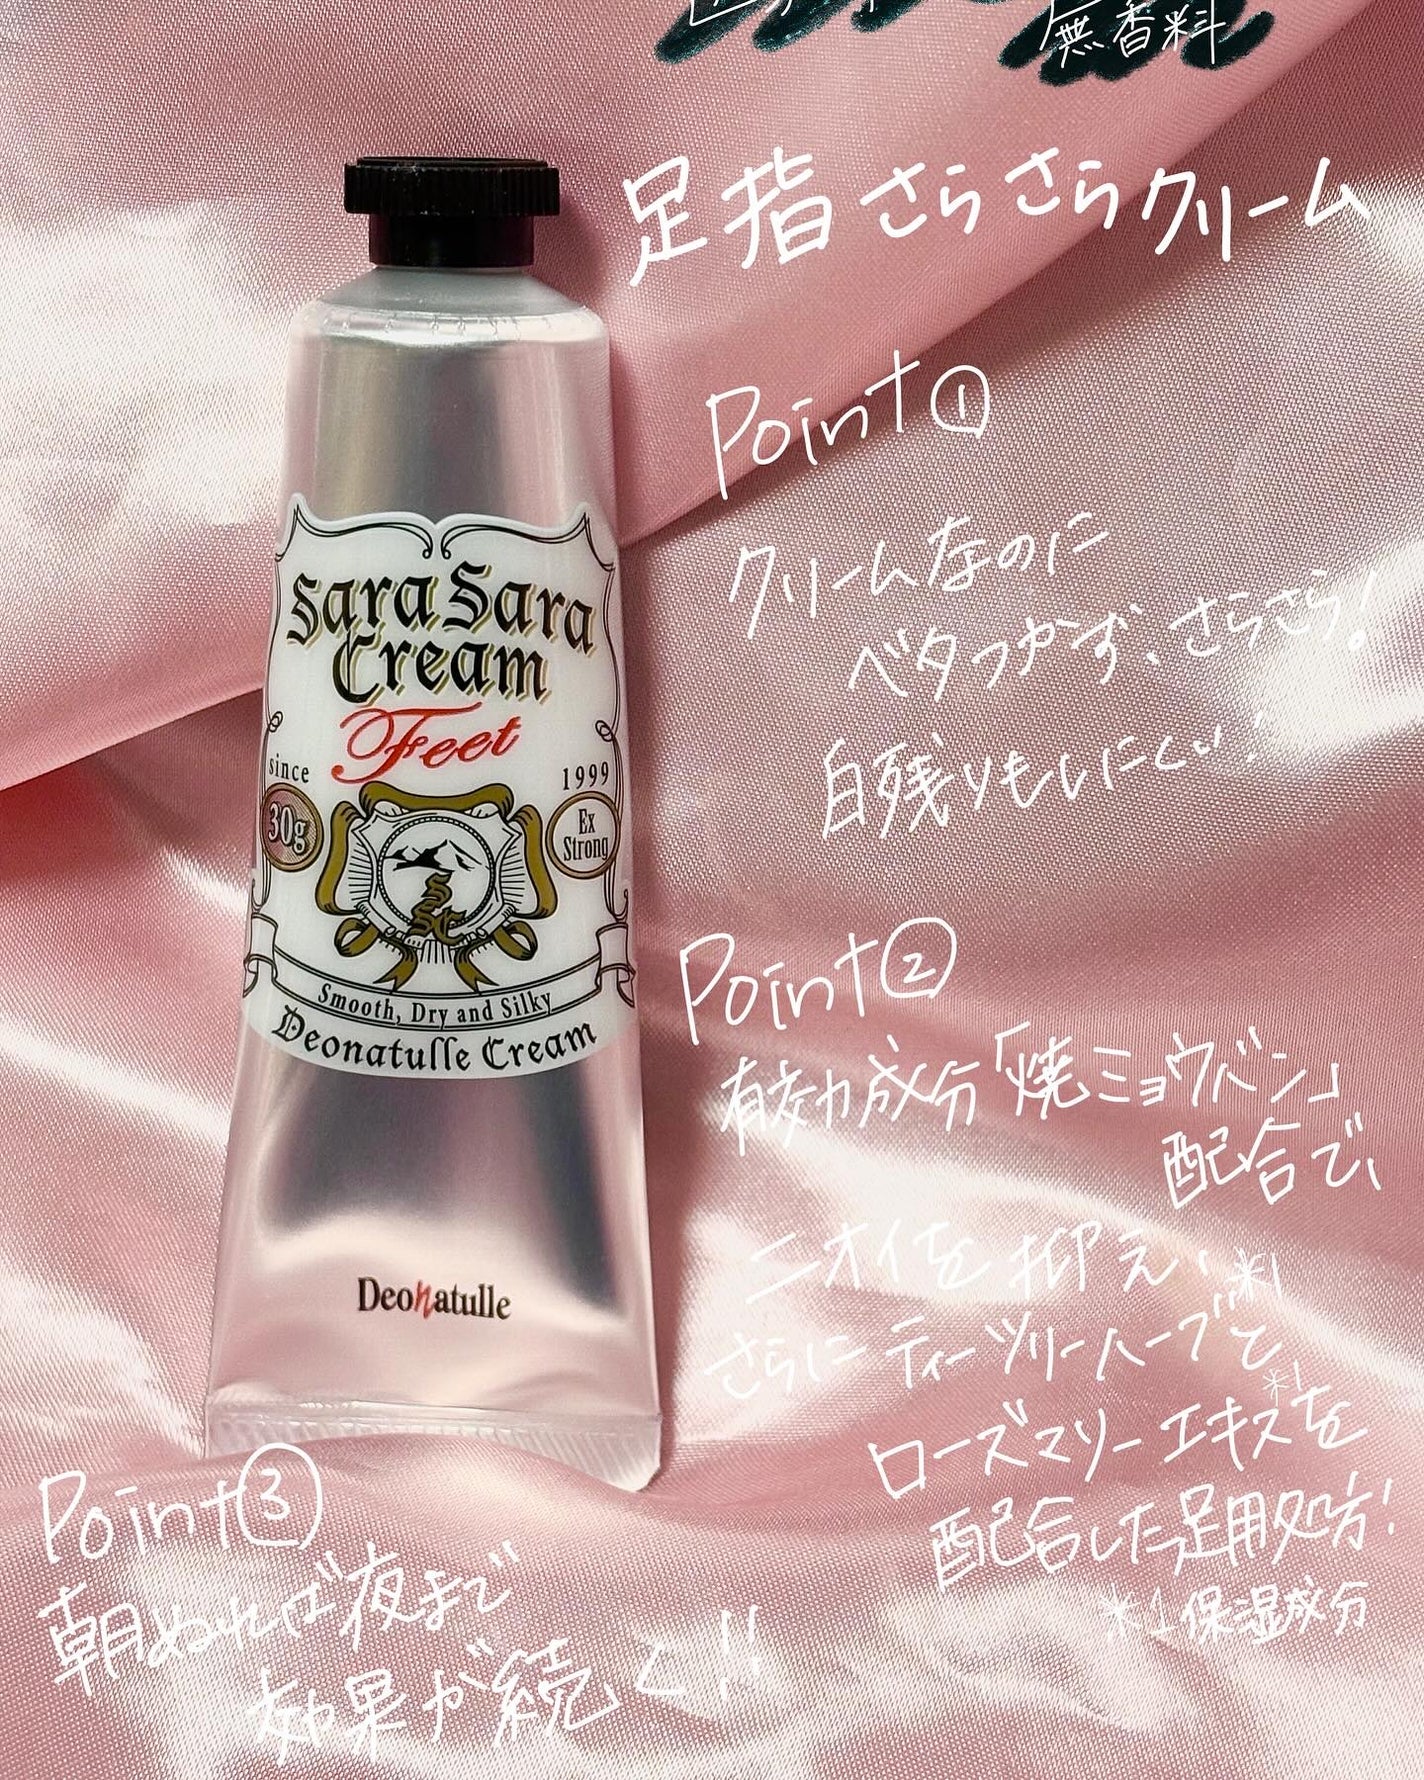 無香料
足指さらさらクリーム
Point①
クリームなのに
ベタつかず、さらさら!
白残りもしにくい!
Sara Sara
Cream
Feet
since
1999
30g
Ex
Strong
SSC
Smooth, Dry and Silky
Deonatulle Cream
Deonatulle
Point②
有効成分「焼ミョウバン」
配合で、
ニオイを抑え、
さらにティーツリーハーブ*1と
ローズマリーエキス*1を
配合した足用処方!
*1保湿成分
Point③
朝ぬれば夜まで
効果が続く!!